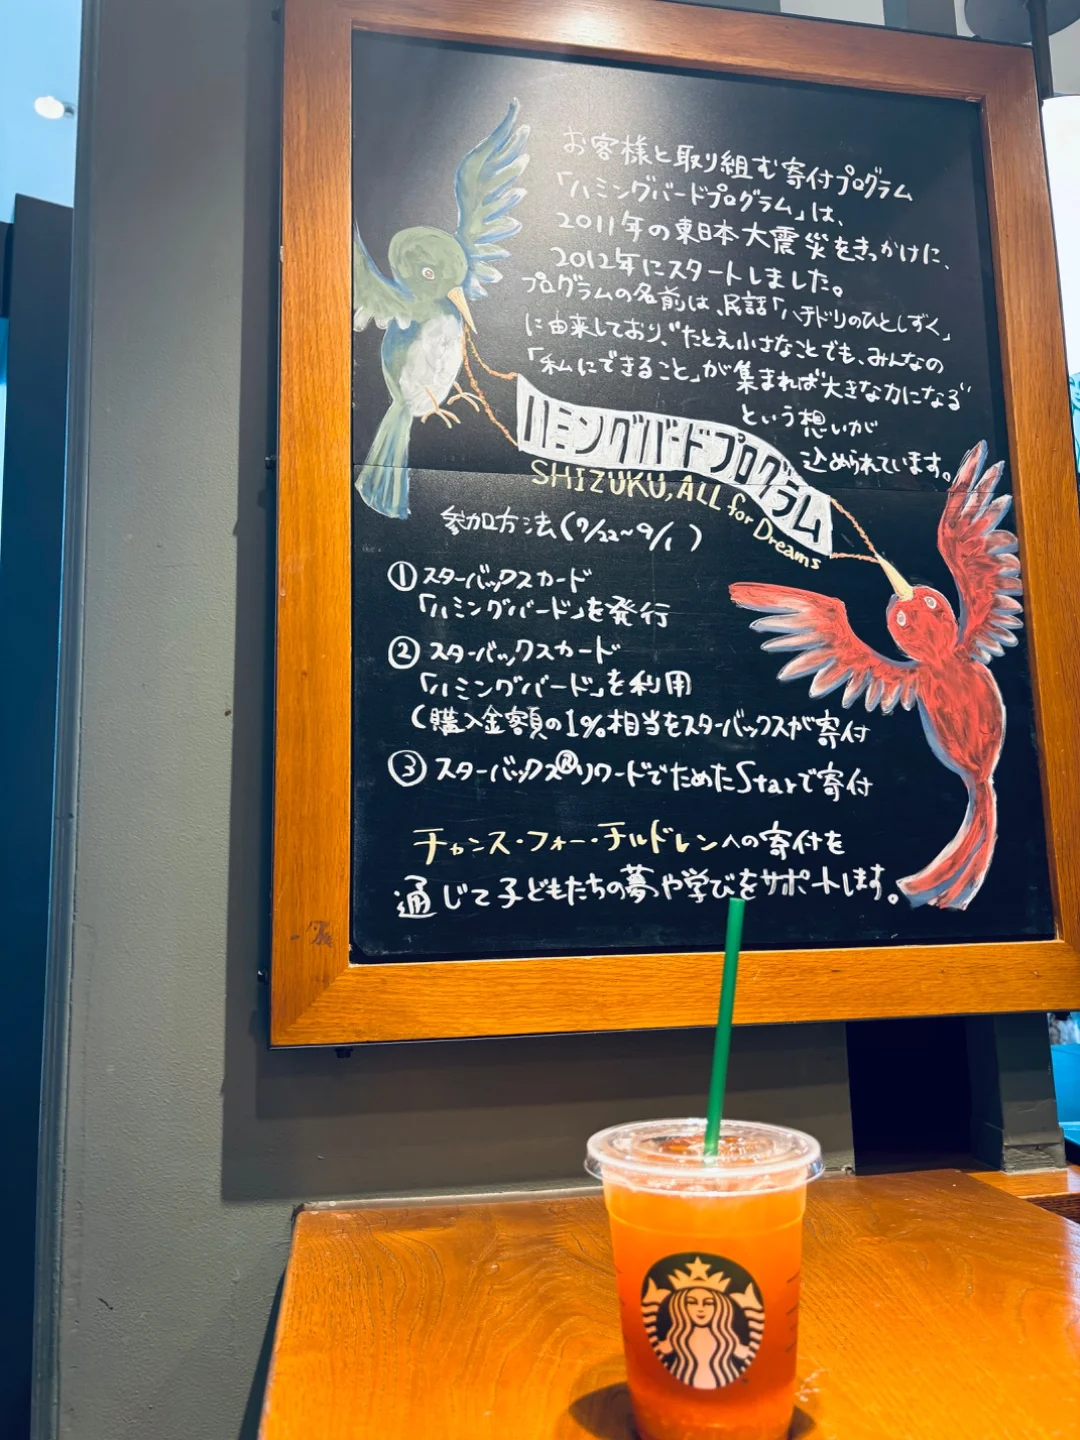 お客様と取り組む寄付プログラム
「ハミングバードプログラム」は、
2011年の東日本大震災をきっかけに、
2012年にスタートしました。
プログラムの名前は、民話「ハチドリのひとしずく」
に由来しており、"たとえ小さなことでも、みんなの
「私にできること」が集まれば"大きな力になる"
という想いが
込められています。
ハミングバードプログラム
SHIZUKU, ALL for Dreams
参加方法(7/22~9/1)
①スターバックスカード
「ハミングバード」を発行
②スターバックスカード
「ハミングバード」を利用
(購入金額の1%相当をスターバックスが寄付
③スターバックス®リワードでためたStarで寄付
チャンス・フォー・チルドレンへの寄付を
通じて子どもたちの夢や学びをサポートします。